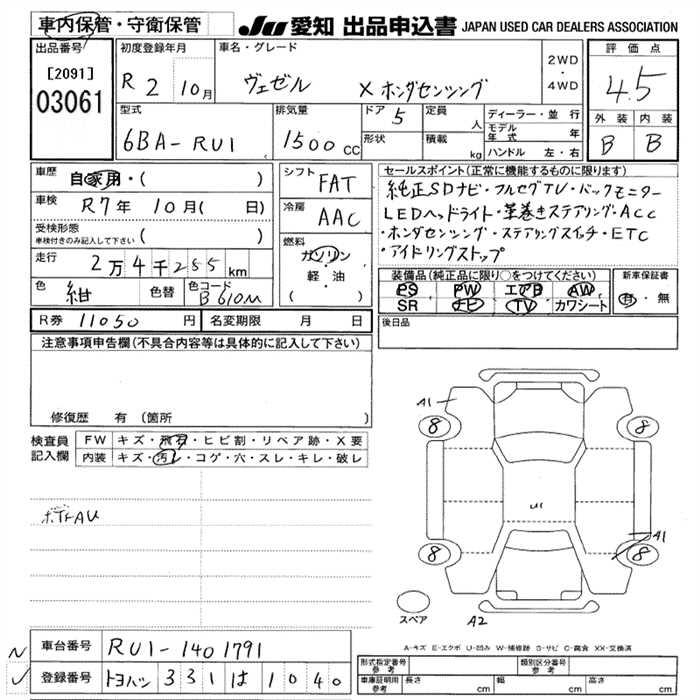 車内保管・守衛保管
JU 愛知 出品申込書 JAPAN USED CAR DEALERS ASSOCIATION
出品番号
[2091]
03061
初度登録年月
R 2 10月
車名・グレード
ヴェゼル X ホンダセンシング
2WD
・
4WD
評価点
4.5
外装 内装
B B
型式
6BA-RU1
排気量
1500CC
ドア 5
形状
定員 人
積載 kg
ディーラー・並行
モデル年式 年
ハンドル 左・右
車歴 自家用・( )
車検 R7年 10月( 日)
受検形態
車検付きのみ記入して下さい ( )
走行 2万4千255km
色 紺 色替 色コード B610M
シフト FAT
冷房 AAC
燃料 ガソリン
軽・油
( )
セールスポイント(正常に機能するものに限ります)
純正SDナビ・フルセグTV・バックモニター
LEDヘッドライト・革巻きステアリング・ACC
・ホンダセンシング・ステアリングスイッチ・ETC
・アイドリングストップ
装備品(純正品に限り○をつけてください)
PS PW エアB AW
SR ナビ TV カワシート
新車保証書
有・無
R券 11050円 名変期限 月 日
後日品
注意事項申告欄(不具合内容等は具体的に記入して下さい)
修復歴 有(箇所 )
検査員記入欄
FW キズ・飛石・ヒビ割・リペア跡・X要
内装 キズ・汚レ・コゲ・穴・スレ・キレ・破レ
A1
8 8
U1
A1
8 8
スペア
A2
A-キズ E-エクボ U-凹み W-補修跡 S-サビ C-腐食 XX-交換済
車台番号 RU1-1401791
登録番号 トヨハシ 331 は 1040
形式指定番号 参考
類別区分番号 参考
車庫証明用 参考 長さ cm 幅 cm 高さ cm